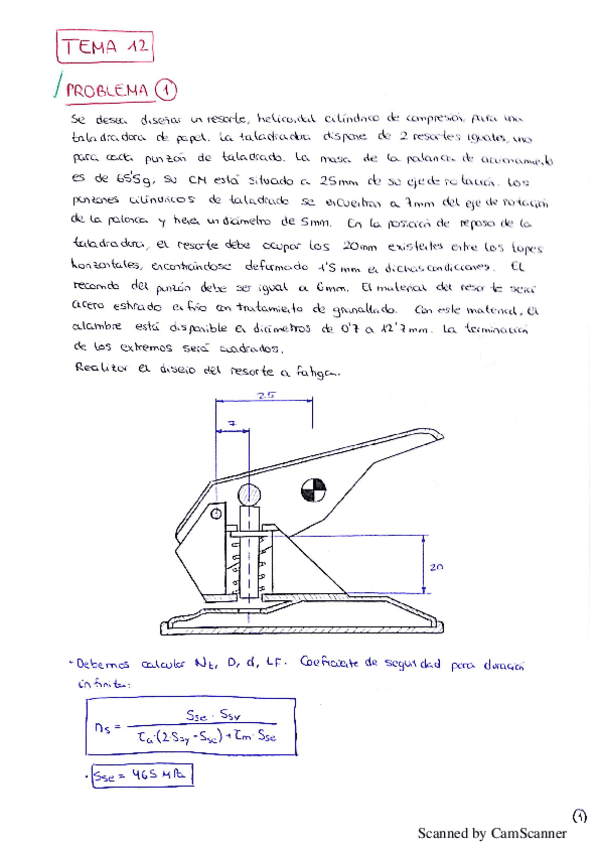 TEMA 12
PROBLEMA 1
Se desea diseñar un resorte, helicoidal cilíndrico de compresión, para una
taladradora de papel. La taladradora dispone de 2 resortes iguales, uno
para cada punzón de taladrado. La masa de la palanca de accionamiento
es de 65'5g, su CM está situado a 25mm de su eje de rotación. Los
punzones cilíndricos de taladrado se encuentran a 7mm del eje de rotación
de la palanca y tienen un diámetro de 5mm. En la posición de reposo de la
taladradora, el resorte debe ocupar los 20mm existentes entre los topes
horizontales, encontrándose deformado 1'5mm en dichas condiciones. El
recorrido del punzón debe ser igual a 6mm. El material del resorte será
acero estirado en frío con tratamiento de granallado. Con este material, el
alambre está disponible en diámetros de 0'7 a 12'7mm. La terminación
de los extremos será cuadrados.
Realizar el diseño del resorte a fatiga.
25
7
20
· Debemos calcular Nt, D, d, LF. Coeficiente de seguridad para duración
infinita:
ns = Sse · Ssy / τa·(2Ssy - Sse) + τm · Sse
· Sse = 465 MPa
1
Scanned by CamScanner